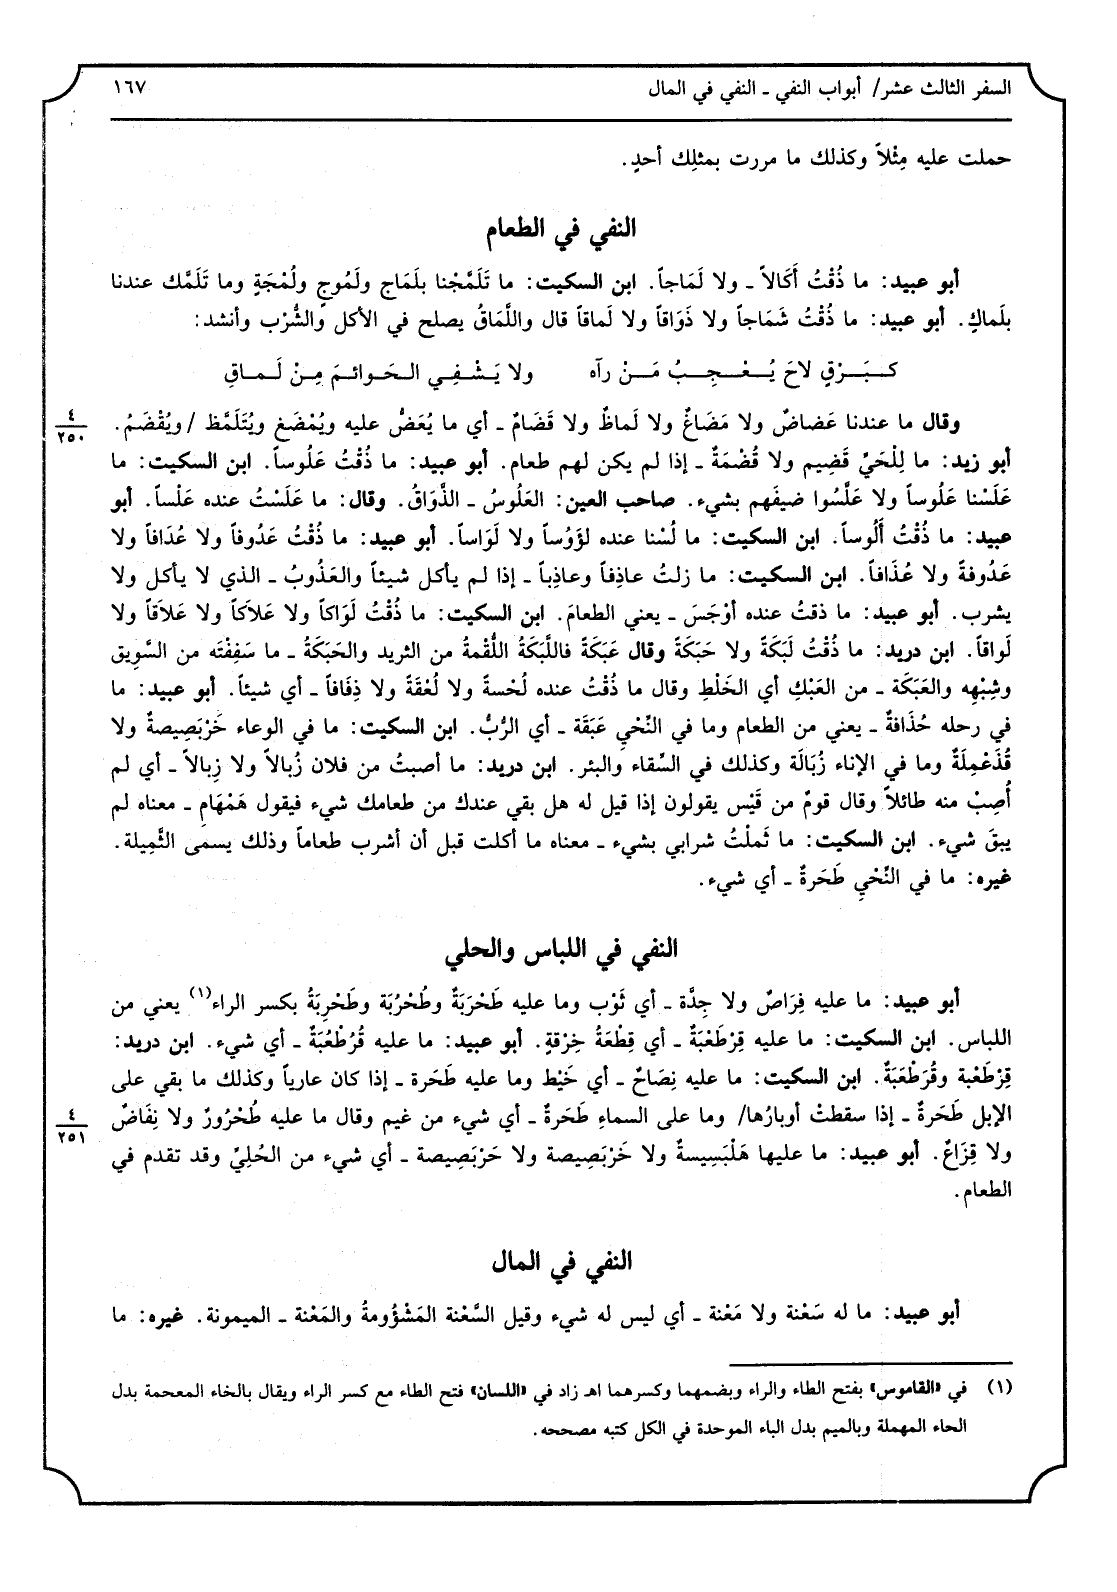 السفر الثالث عشر/ أبواب النفي ـ النفي في المال ١٦٧
حملت عليه مِثْلاً وكذلك ما مررت بمثلِك أحدٍ.
النفي في الطعام
أبو عبيد: ما ذُقْتُ أَكَالاً ـ ولا لَمَاجاً. ابن السكيت: ما تَلَمَّجْنا بلَماج ولَمُوجٍ ولُمْجَةٍ وما تَلَمَّك عندنا
بلَماكٍ. أبو عبيد: ما ذُقْتُ شَمَاجاً ولا ذَوَاقاً ولا لَماقاً قال واللَّمَاقُ يصلح في الأكل والشُّرْب وأنشد:
كَبَرْقٍ لاحَ يُعْجِبُ مَنْ رآه ولا يَشْفِي الحَوائمَ مِنْ لَماقِ
وقال ما عندنا عَضاضٌ ولا مَضَاغٌ ولا لَماظٌ ولا قَضَامٌ ـ أي ما يُعَضُّ عليه ويُمْضَغ ويُتَلَمَّظ /ويُقْضَمُ.
٤
٢٥٠
أبو زيد: ما لِلْحَيِّ قَضِيم ولا قُضْمَةٌ ـ إذا لم يكن لهم طعام. أبو عبيد: ما ذُقْتُ عَلُوساً. ابن السكيت: ما
عَلَسْنا عَلُوساً ولا عَلَّسُوا ضيفَهم بشيء. صاحب العين: العَلُوسُ ـ الذَّوَاقُ. وقال: ما عَلَسْتُ عنده عَلْساً. أبو
عبيد: ما ذُقْتُ أَلُوساً. ابن السكيت: ما لُسْنا عنده لؤَوُساً ولا لَوَاساً. أبو عبيد: ما ذُقْتُ عَدُوفاً ولا عُدَافاً ولا
عَدُوفةً ولا عُذَافاً. ابن السكيت: ما زلتُ عاذِفاً وعاذِباً ـ إذا لم يأكل شيئاً والعَذُوبُ ـ الذي لا يأكل ولا
يشرب. أبو عبيد: ما ذقتُ عنده أوْجَسَ ـ يعني الطعامَ. ابن السكيت: ما ذُقْتُ لَوَاكاً ولا عَلاَكاً ولا عَلاَقاً ولا
لَواقاً. ابن دريد: ما ذُقْتُ لَبَكَةً ولا حَبَكَةً وقال عَبَكَةً فاللَّبَكَةُ اللُّقْمةُ من الثريد والحَبَكَةُ ـ ما سَفِفْتَه من السَّوِيق
وشِبْهِه والعَبَكَة ـ من العَبْكِ أي الخَلْطِ وقال ما ذُقْتُ عنده لُحْسةً ولا لُعْقَةً ولا ذِفَافاً ـ أي شيئاً. أبو عبيد: ما
في رحله حُذَافةٌ ـ يعني من الطعام وما في النِّحْيِ عَبَقَة ـ أي الرُّبُّ. ابن السكيت: ما في الوعاء خَرْبَصِيصةٌ ولا
قُذَعْمِلَةٌ وما في الإناء زُبَالَة وكذلك في السِّقاء والبئر. ابن دريد: ما أصبتُ من فلان زُبالاً ولا زِبالاً ـ أي لم
أُصِبْ منه طائلاً وقال قومٌ من قَيْس يقولون إذا قيل له هل بقي عندك من طعامك شيء فيقول هَمْهَامِ ـ معناه لم
يبقَ شيء. ابن السكيت: ما ثَملْتُ شرابي بشيء ـ معناه ما أكلت قبل أن أشرب طعاماً وذلك يسمى الثَّمِيلة.
غيره: ما في النِّحْيِ طَحَرةٌ ـ أي شيء.
النفي في اللباس والحلي
أبو عبيد: ما عليه فِرَاصٌ ولا جِدَّة ـ أي ثَوْب وما عليه طَحْرَبَةٌ وطُحْرُبَة وطَحْرِبَةُ بكسر الراء(١) يعني من
اللباس. ابن السكيت: ما عليه قِرْطَعْبَةٌ ـ أي قِطْعَةُ خِرْقةٍ. أبو عبيد: ما عليه قُرُطْعُبَةٌ ـ أي شيء. ابن دريد:
قِرْطَعْبة وقُرَطْعَبَةٌ. ابن السكيت: ما عليه نِصَاحٌ ـ أي خَيْط وما عليه طَحَرة ـ إذا كان عارياً وكذلك ما بقي على
الإبل طَحَرةٌ ـ إذا سقطتْ أوبارُها/ وما على السماءِ طَحَرةٌ ـ أي شيء من غيم وقال ما عليه طُحْرُورٌ ولا نِفَاضٌ
٤
٢٥١
ولا قِزَاعٌ. أبو عبيد: ما عليها هَلْبَسِيسةٌ ولا خَرْبَصِيصة ولا حَرْبَصِيصة ـ أي شيء من الحُلِيِّ وقد تقدم في
الطعام.
النفي في المال
أبو عبيد: ما له سَعْنة ولا مَعْنة ـ أي ليس له شيء وقيل السَّعْنة المَشْؤُومةُ والمَعْنة ـ الميمونة. غيره: ما
(١) في «القاموس» بفتح الطاء والراء وبضمهما وكسرهما اهـ زاد في «اللسان» فتح الطاء مع كسر الراء ويقال بالخاء المعحمة بدل
الحاء المهملة وبالميم بدل الباء الموحدة في الكل كتبه مصححه.